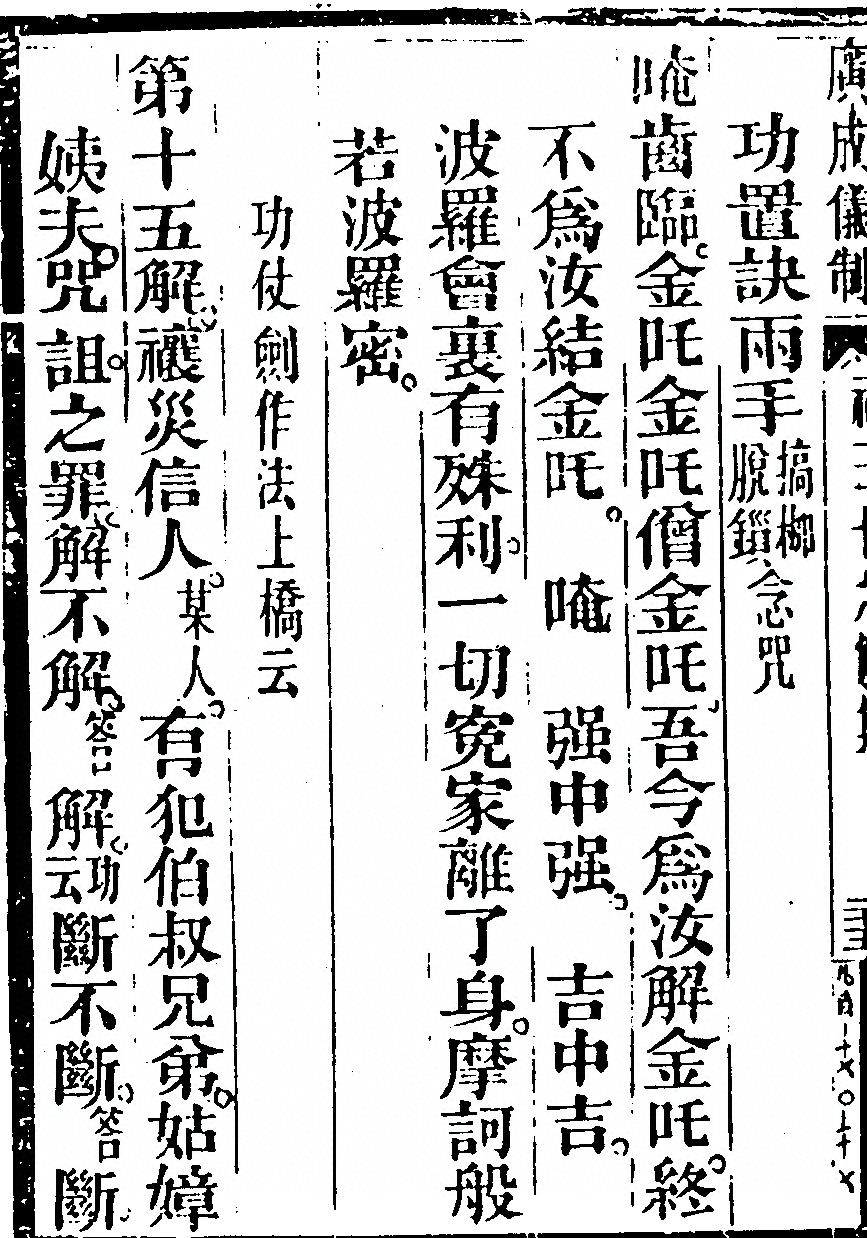 廣成儀制
功置訣兩手搞梛脫鎖念咒
唵齒臨。金吒金吒僧金吒。吾今爲汝解金吒。終
不爲汝結金吒。唵 强中强。吉中吉。
波羅會裏有殊利。一切寃家離了身。摩訶般
若波羅密。
功仗劍作法上橋云
第十五解。禳災信人。某人。有犯伯叔兄弟。姑嫜
姨夫。咒詛。之罪。解不解。答解。功云斷不斷。答斷。